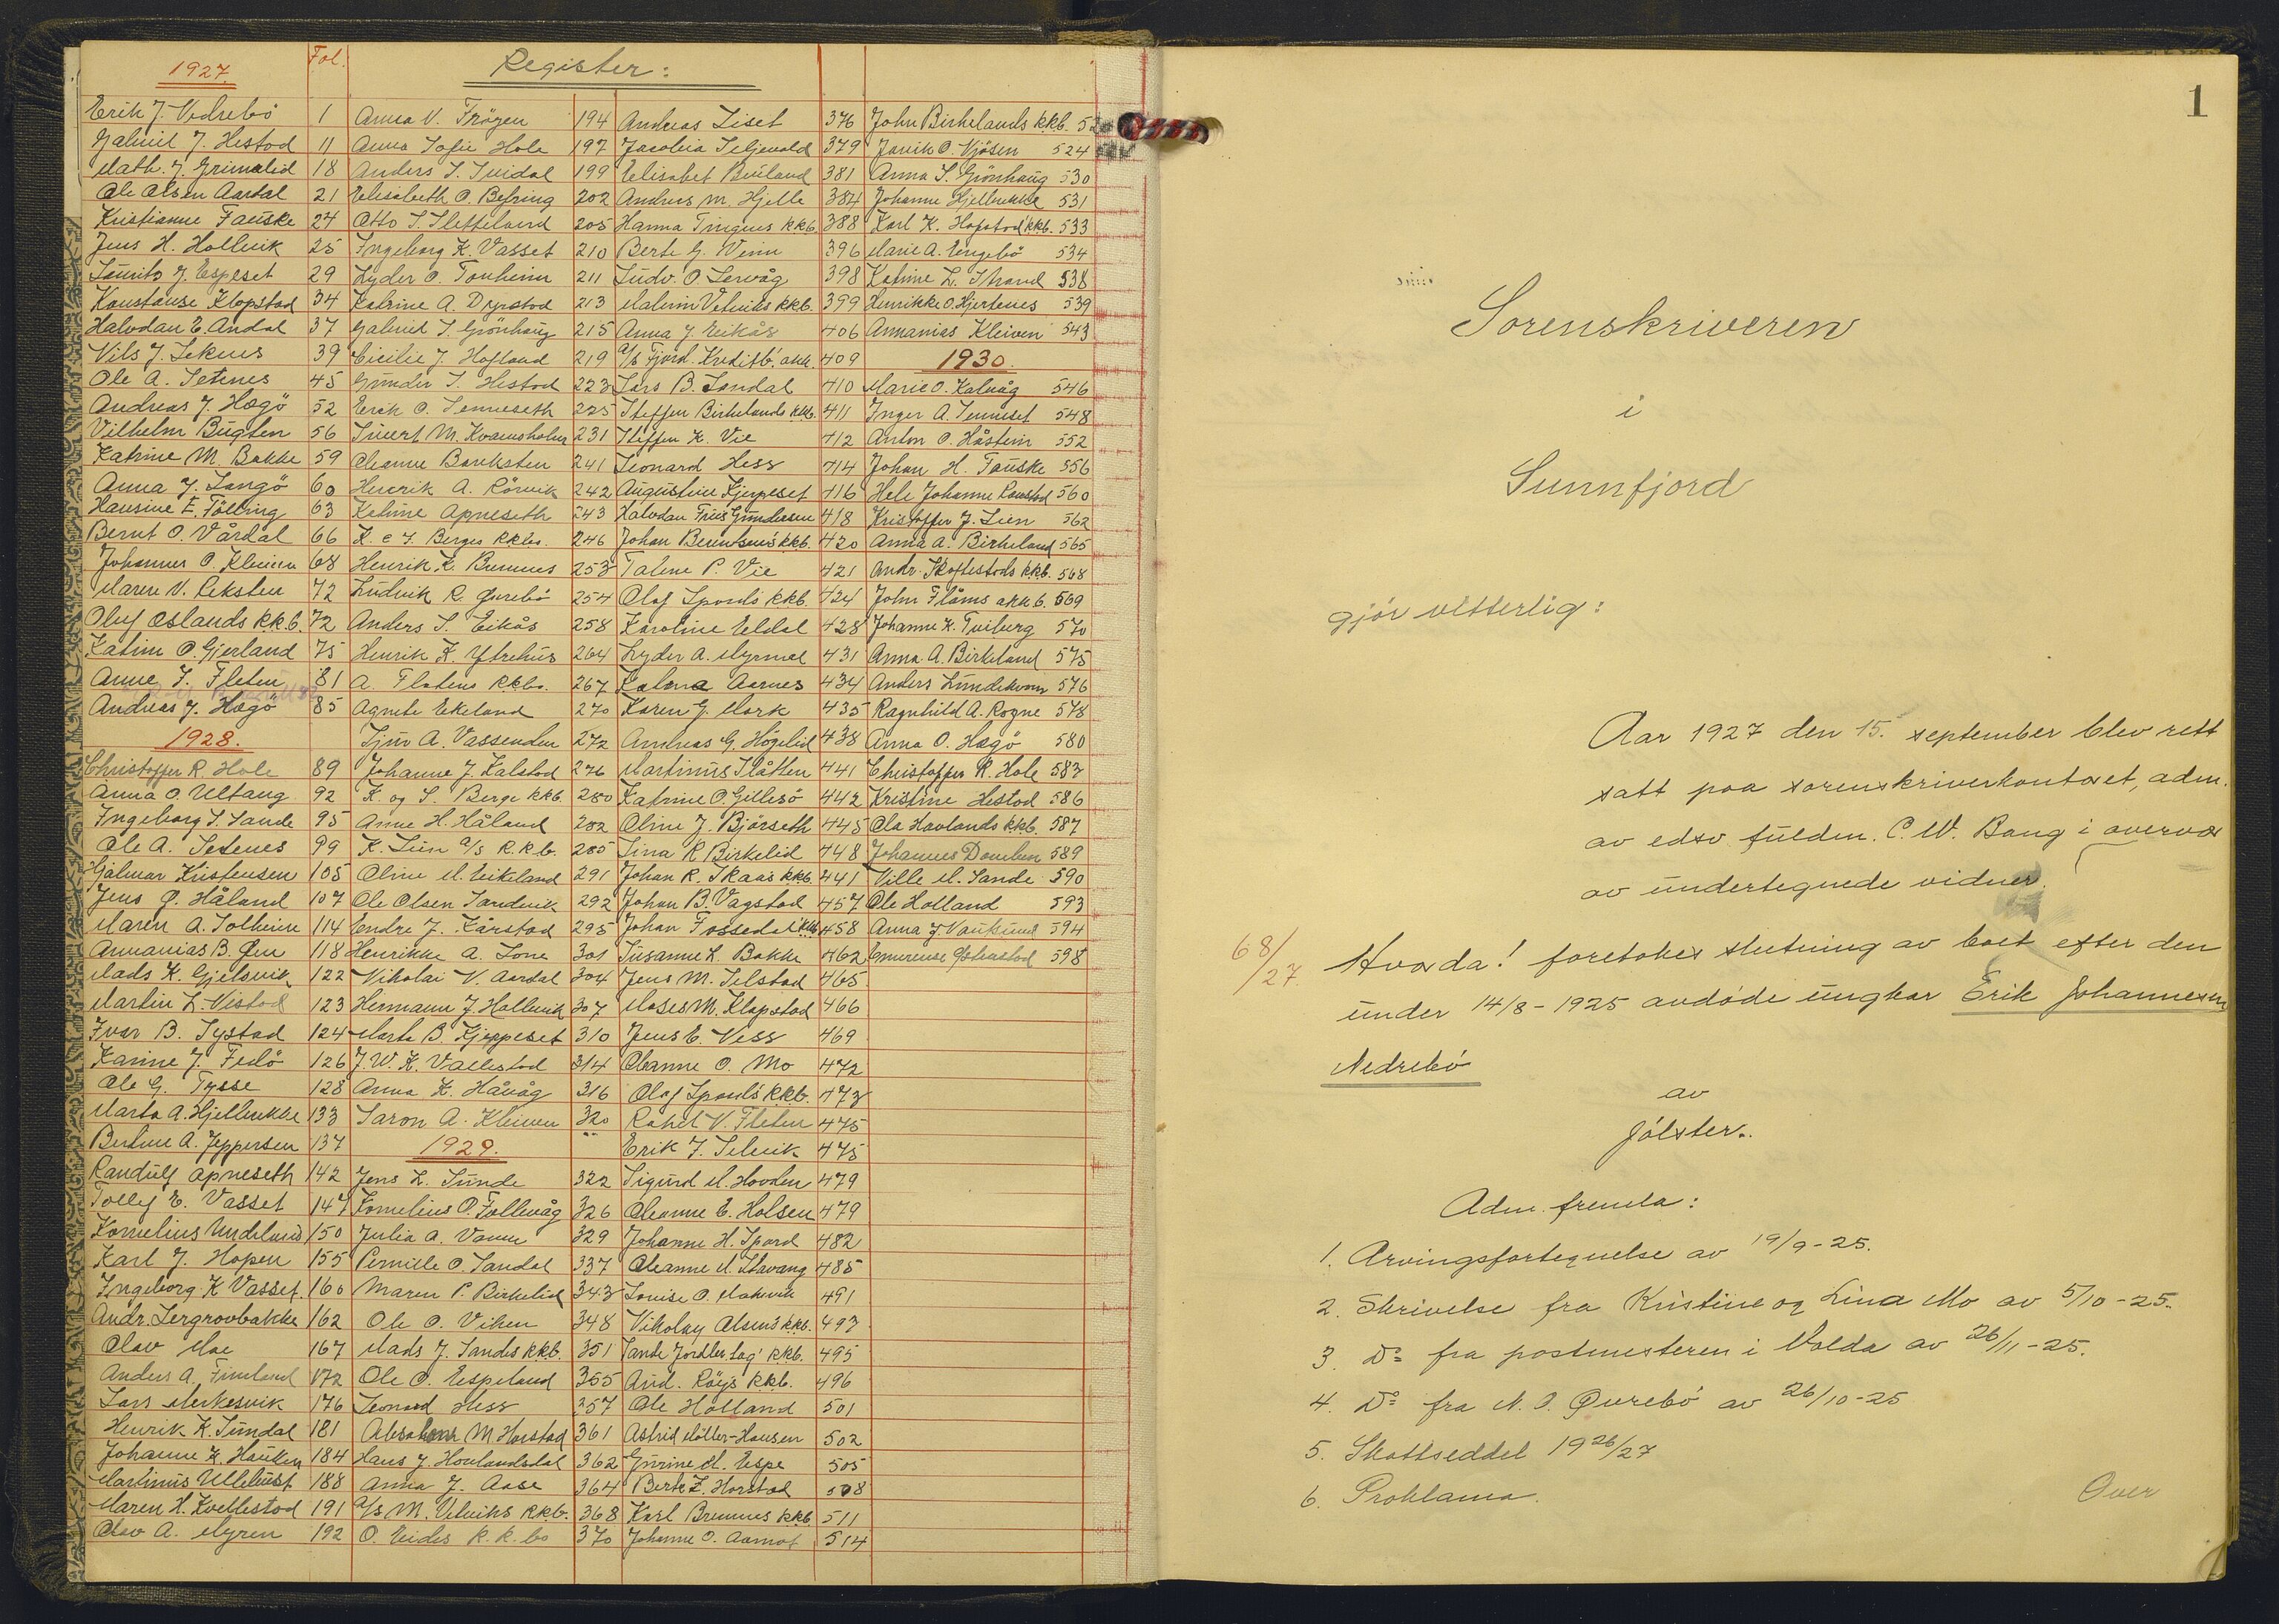 1927
Fol.
Register:
Erik J. Nedrebö 1
Gabriel J. Hestad 11
Math. J. Grimelid 18
Ole Olsen Aardal 21
Kristianne Fauske 24
Jens H. Hollevik 25
Laurits J. Espeset 29
Konstanse Klopstad 34
Halvdan E. Andal 37
Nils J. Leknes 39
Ole A. Setenes 45
Andreas J. Hægö 52
Vilhelm Bugten 56
Katrine M. Bakke 59
Anna J. Langö 60
Hansine E. Fölling 63
Bernt O. Vårdal 66
Johannes O. Kleiven 68
Maren N. Reksten 72
Oluf Oslands kkb. 72
Katrine O. Gjerland 75
Anne J. Fleten 81
Andreas J. Hægö 85
1928.
Christoffer R. Hole 89
Anna O. Ultang 92
Ingeborg S. Sande 95
Ole A. Setenes 99
Hjalmar Kristensen 105
Jens O. Håland 107
Maren A. Solheim 114
Annanias B. Øen 118
Mads K. Gjelsvik 122
Martin L. Nistad 123
Ivar B. Systad 124
Karine J. Fedö 126
Ole G. Tysse 128
Marta A. Hjelbrekke 133
Bertine A. Jeppersen 137
Randulf Apneseth 142
Tolley E. Vasset 147
Kornelius Undeland 150
Karl J. Hopen 155
Ingeborg K. Vasset. 160
Andr. Lergrovbakke 162
Olav Moe 167
Anders A. Fimland 172
Lars Merkesvik 176
Henrik K. Sundal 181
Johanne K. Hauken 184
Martinus Ullelust 188
Maren H. Kvellestad 191
Olav A. Myren 192
Anna V. Fröyen 194
Anna Sofie Hole 197
Anders I. Indal 199
Elisabeth O. Befring 202
Otto S. Slettelund 205
Ingeborg K. Vasset 210
Lyder O. Tonheim 211
Katrine A. Dyrstad 213
Gabriel S. Grönhaug 215
Cicilie J. Hofland 219
Gunder S. Hestad 223
Erik O. Senneseth 225
Sivert M. Kvamsholm 231
Oleanne Barksten 241
Henrik A. Rörvik 242
Katrine Apneseth 243
K. & S. Berges kkbo. 246
Henrik K. Bremnes 253
Ludvik R. Øvrebö 254
Anders S. Eikås 258
Henrik K. Ytrehus 264
A. Flatens kkbo. 267
Agnete Ekeland 270
Sjur A. Vassenden 272
Johanne J. Kalstad 276
K. og S. Berge kkb. 280
Anne H. Håland 282
K. Lien A/S k.k.b. 285
Oline M. Eikeland 291
Ole Olsen Sandvik 292
Endre J. Kårstad 295
Henrikke A. Lone 301
Nikolai N. Aardal 304
Hermann J. Hollevik 307
Marta B. Kjeppeset 310
J. W. K. Vallestad 314
Anna K. Håvåg 316
Saron A. Kleiven 320
1929.
Jens L. Sunde 322
Kornelius O. Follevåg 326
Julia A. Vamm 329
Pernille O. Sandal 337
Maren P. Birkelid 343
Ole O. Viken 348
Mads J. Sandes kkb. 351
Ole O. Espeland 355
Leonard Hess 357
Absalon M Horstad 361
Hans J Houlandsdal 362
Anna J. Aase 364
A/S M. Ulviks kkb. 368
O. Eides k.k.bo 370
Andreas Liset 376
Jacobia Seljevold 379
Elisabet Birkeland 381
Andreas M. Hjelle 384
Hanna Tingnes kkb. 388
Berte G. Weim 396
Ludv. O. Servåg 398
Malvin Ulviks kkb. 399
Anna J. Eikås 406
A/S Fjord. Kreditb. akk. 409
Lars B. Sandal 410
Steffen Birkelands kkb. 411
Steffen K. Vie 412
Leonard Hess 414
Augustine Kjeppeset 416
Halvdan Friis Gundersen 418
Johan Berentsens kkb. 420
Taline P. Vie 421
Olaf Spords kkb. 424
Karoline Eldal 428
Lyder A. Myrmel 431
Katrine Aarnes 434
Karen G. Mork 435
Andreas G. Högelid 438
Martinus Slåtten 441
Katrine O. Gillesö 442
Oline J. Björseth 445
Lina R Birkelid 448
Johan R. Skaas kkb. 441
Johan B. Vagstad 457
Johan Fossedal kkb 458
Susanne L. Bakke 462
Jens M. Selstad 465
Moses M. Klopstad 466
Jens E. Vess 469
Oleanne O. Mo 472
Olaf Spords kkb. 473
Rakel N. Fleten 475
Erik J. Selvik 475
Sigurd M. Hovden 479
Oleanne E. Holsen 479
Johanne H. Spord 482
Oleanne M. Stavang 485
Lovise O. Markevik 491
Nikolay Olsens kkb. 493
Sande Jordkr. lag' kkb. 495
And. Röys kkb. 496
Ole Holland 501
Astrid Möller-Hansen 502
Gurine M. Espe 505
Berte L. Horstad 508
Karl Bremnes kkb 511
Johanne O. Aamot 514
John Birkelands kkb. 52
Janik O. Njösen 524
Anna S. Grönhaug 530
Johanne Hjelbrekke 531
Karl K. Hopstad kkb. 533
Marie A. Engebö 534
Katrine L. Strand 538
Henrikke O. Hjertenes 539
Annanias Kleiven 543
1930.
Marie O. Kalvåg 546
Inger A. Senneset 548
Anton O. Håstein 552
Johan H. Fauske 556
Hele Johanne Ramstad 560
Kristoffer J. Lien 562
Anna A. Birkeland 565
Andr. Skoftestads kkb. 568
John Flåms akk b. 569
Johanne K. Tviberg 570
Anna A. Birkeland 575
Anders Lundekvam 576
Ragnhild A. Rogne 578
Anna O. Hægö 580
Christoffer R. Hole 583
Kristine Hestad 586
Ola Havlands kkb. 587
Johannes Domben 589
Ville M. Sande 590
Ole Holland 593
Anna J. Nautsund 594
598
1
Sorenskriveren
i
Sunnfjord
gjör vitterlig:
Aar 1927 den 15. september blev rett
satt paa sorenskriverkontoret, adm.
av edsv. fuldm. C. W. Bang i overvær
av undertegnede vidner.
68/27
Hvorda! foretokes slutning av boet efter den
under 14/8-1925 avdöde ungkar Erik Johannesen
Nedrebö
av
Jölster.
Adm. fremla:
1. Arvingsfortegnelse av 19/9-25.
2. Skrivelse fra Kristine og Lina Mo av 5/10-25.
3. Do fra postmesteren i Volda av 26/11-25.
4. Do fra N. J. Øvrebö av 26/10-25
5. Skattseddel 1926/27
6. Proklama.
Over